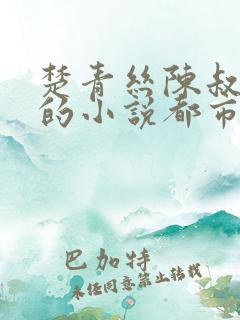 楚青丝陳叔
的小说都市
巴加特
未经同意禁止转载